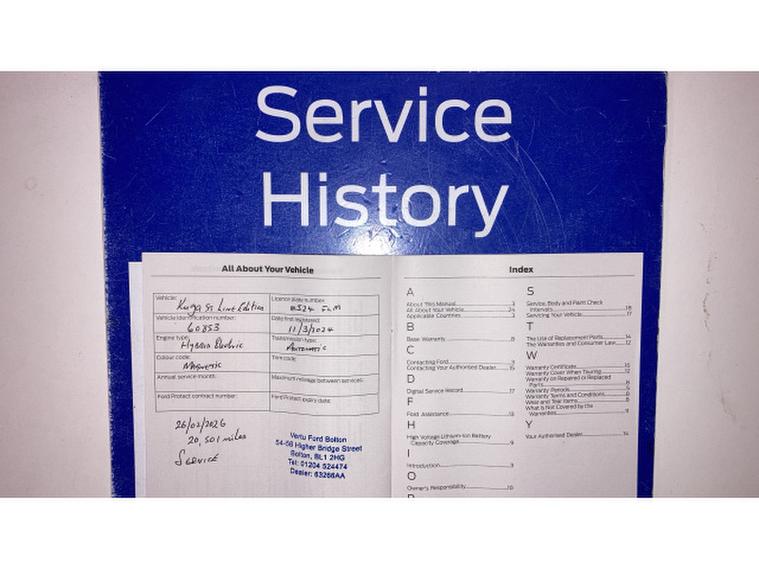 Service
History
All About Your Vehicle
Vehicle: Kuga St Line Edition
Licence plate number:
Vehicle identification number: 60853
Date first registered: 11/3/2024
Engine type: Hybrid Electric
Transmission type: Automatic
Colour code: Magnetic
Trim code:
Annual service month:
Maximum mileage between services:
Ford Protect contract number:
Ford Protect expiry date:
26/02/2026
20,501 miles
Service
Vertu Ford Bolton
54-56 Higher Bridge Street
Bolton, BL1 2HG
Tel: 01204 524474
Dealer: 63266AA
Index
A
About This Manual 3
All About Your Vehicle 24
Applicable Countries 3
B
Base Warranty 8
C
Contacting Ford 3
Contacting Your Authorised Dealer 15
D
Digital Service Record 17
F
Ford Assistance 13
H
High Voltage Lithium-Ion Battery
Capacity Coverage 9
I
Introduction 3
O
Owner's Responsibility 10
S
Service, Body and Paint Check
Intervals 18
Servicing Your Vehicle 17
T
The Use of Replacement Parts 14
The Warranties and Consumer Law 12
W
Warranty Certificate 15
Warranty Cover When Touring 12
Warranty on Repaired or Replaced
Parts
Warranty Periods
Warranty Terms and Conditions
Wear and Tear Items
What Is Not Covered by the
Warranties 11
Y
Your Authorised Dealer 14